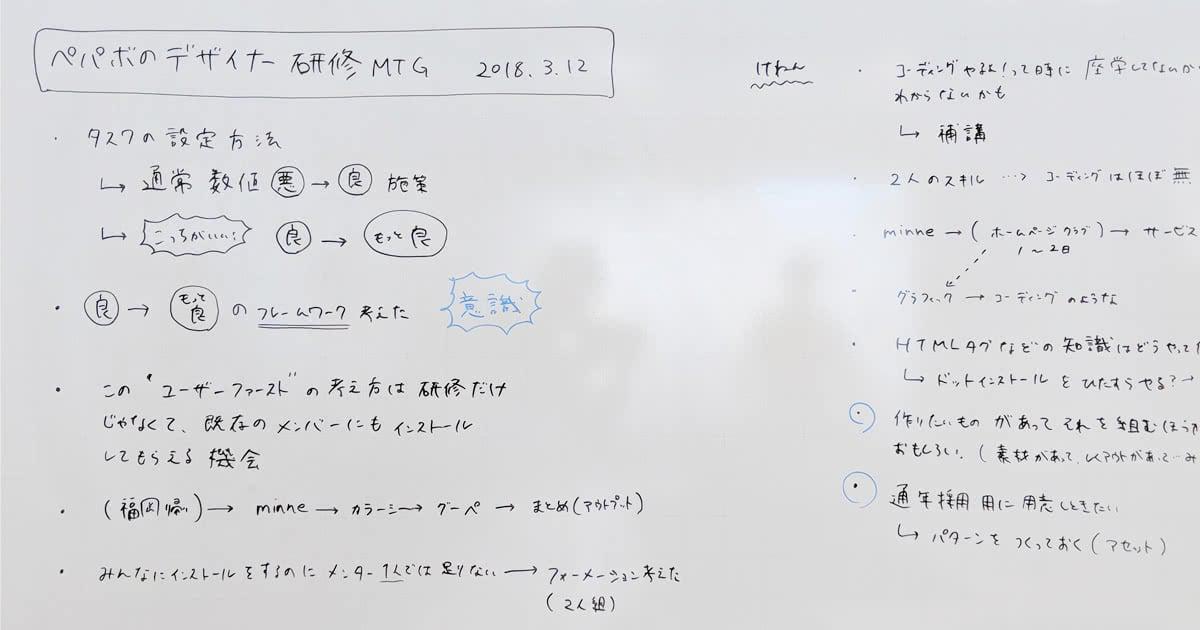 ペパボのデザイナー研修MTG 2018.3.12
・ タスクの設定方法
↳ 通常 数値 悪 → 良 施策
↳ こっちがいい! 良 → もっと良
・ 良 → もっと良 の フレームワーク 考えた 意識
・ この "ユーザーファースト" の考え方は 研修だけ
じゃなくて、既存の メンバーにも インストール
してもらえる 機会
・ (福岡帰) → minne → カラーミー → グーペ → まとめ(アウトプット)
・ みんなにインストールをするのに メンター 1人では 足りない → フォーメーション考えた
(2人組)
けねん
・ コーディングやるよ!って時に 座学してないから
わからないかも
↳ 補講
・ 2人のスキル …→ コーディングはほぼ無
・ minne → (ホームページクラブ) → サービス
1〜2日
・ グラフィック → コーディング のような
・ HTMLタグなどの知識はどうやって
↳ ドットインストール を ひたすら やる? →
・ 作りたいもの があって それを 組むほうが
おもしろい. (素材があって、レイアウトがあって…み
・ 通年採用 用に 用意しときたい
↳ パターンを つくっておく (アセット)